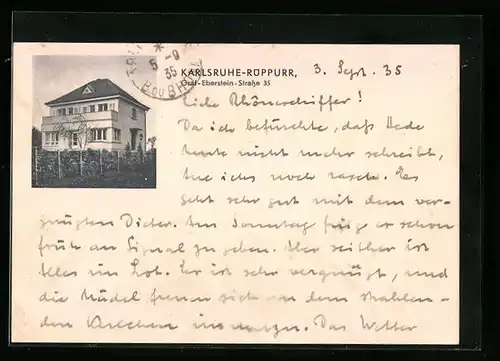 KARLSRUHE-RÜPPURR, 3. Sept. 35
Graf-Eberstein-Straße 35
5 - 9
35
Liebe Rhönschiffer!
Da ich befürchte, daß Hede
heute nicht mehr schreibt,
tue ichs noch rasch. Es
geht sehr gut mit dem ver-
gnügten Dieter. Am Sonntag fing er schon
früh an Signal zu geben. Aber seither ist
Alles im Lot. Er ist sehr vergnügt, und
die Mädel freuen sich an dem strahlen-
den Das Wetter